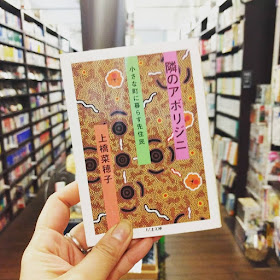 隣のアボリジニ
小さな町に暮らす先住民
上橋菜穂子
ちくま文庫